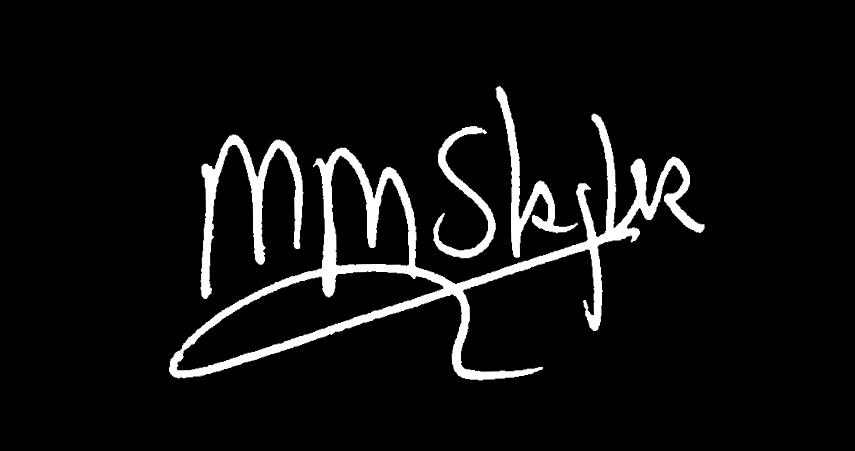 MM Skyler